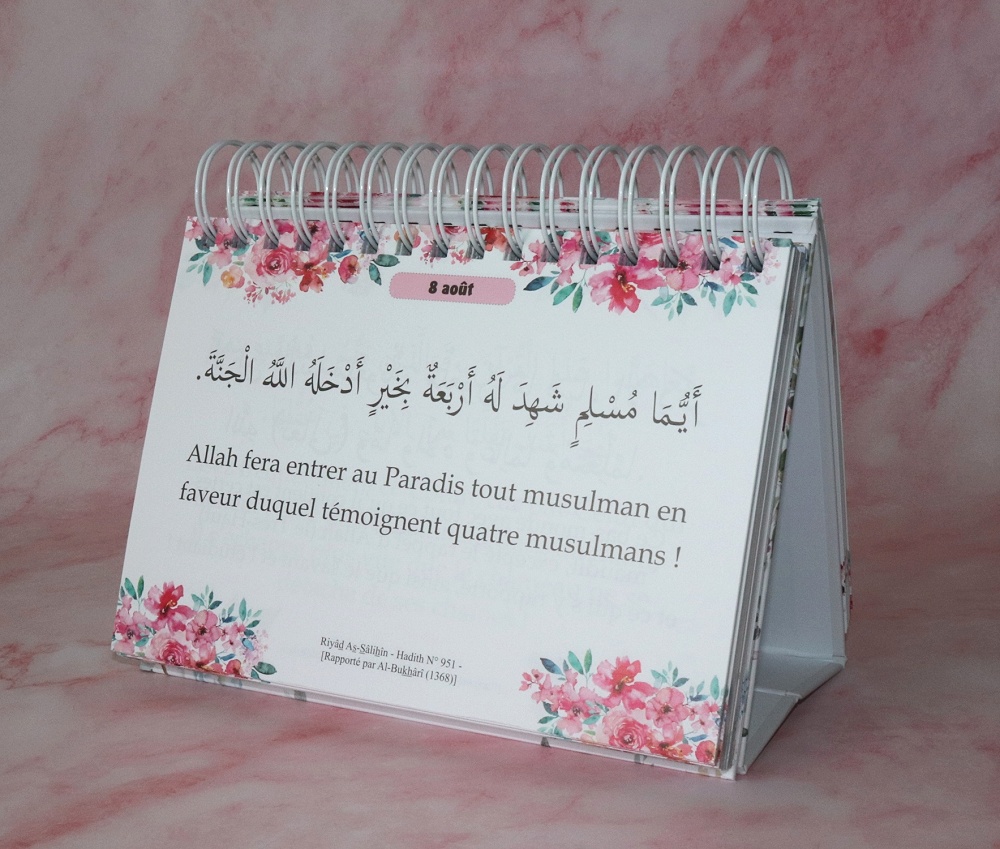 8 août
أَيُّمَا مُسْلِمٍ شَهِدَ لَهُ أَرْبَعَةٌ بِخَيْرٍ أَدْخَلَهُ اللَّهُ الْجَنَّةَ.
Allah fera entrer au Paradis tout musulman en
faveur duquel témoignent quatre musulmans !
Riyâḏ Aṣ-Ṣâliḥîn - Hadith N° 951 -
[Rapporté par Al-Bukhârî (1368)]